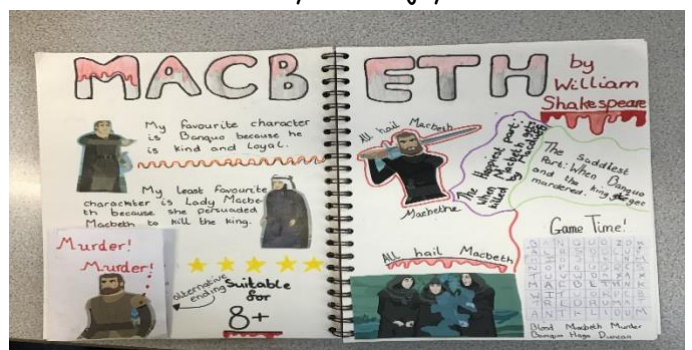 MACBETH
by
William
Shakespeare
My favourite character
is Banquo because he
is kind and loyal.
My least favourite
charachter is Lady Macbe-
th because she persuaded
Macbeth to kill the king.
Murder!
Murder!
alternative
ending
Suitable
for
8+
All hail Macbeth
Macbeth
The Happiest part:
when Macbeth gets
killed by Macduff
The Saddest
Part: When Banquo
and the king get
murdered.
All hail Macbeth
Game Time!
Blood Macbeth Murder
Banquo Hags Duncan